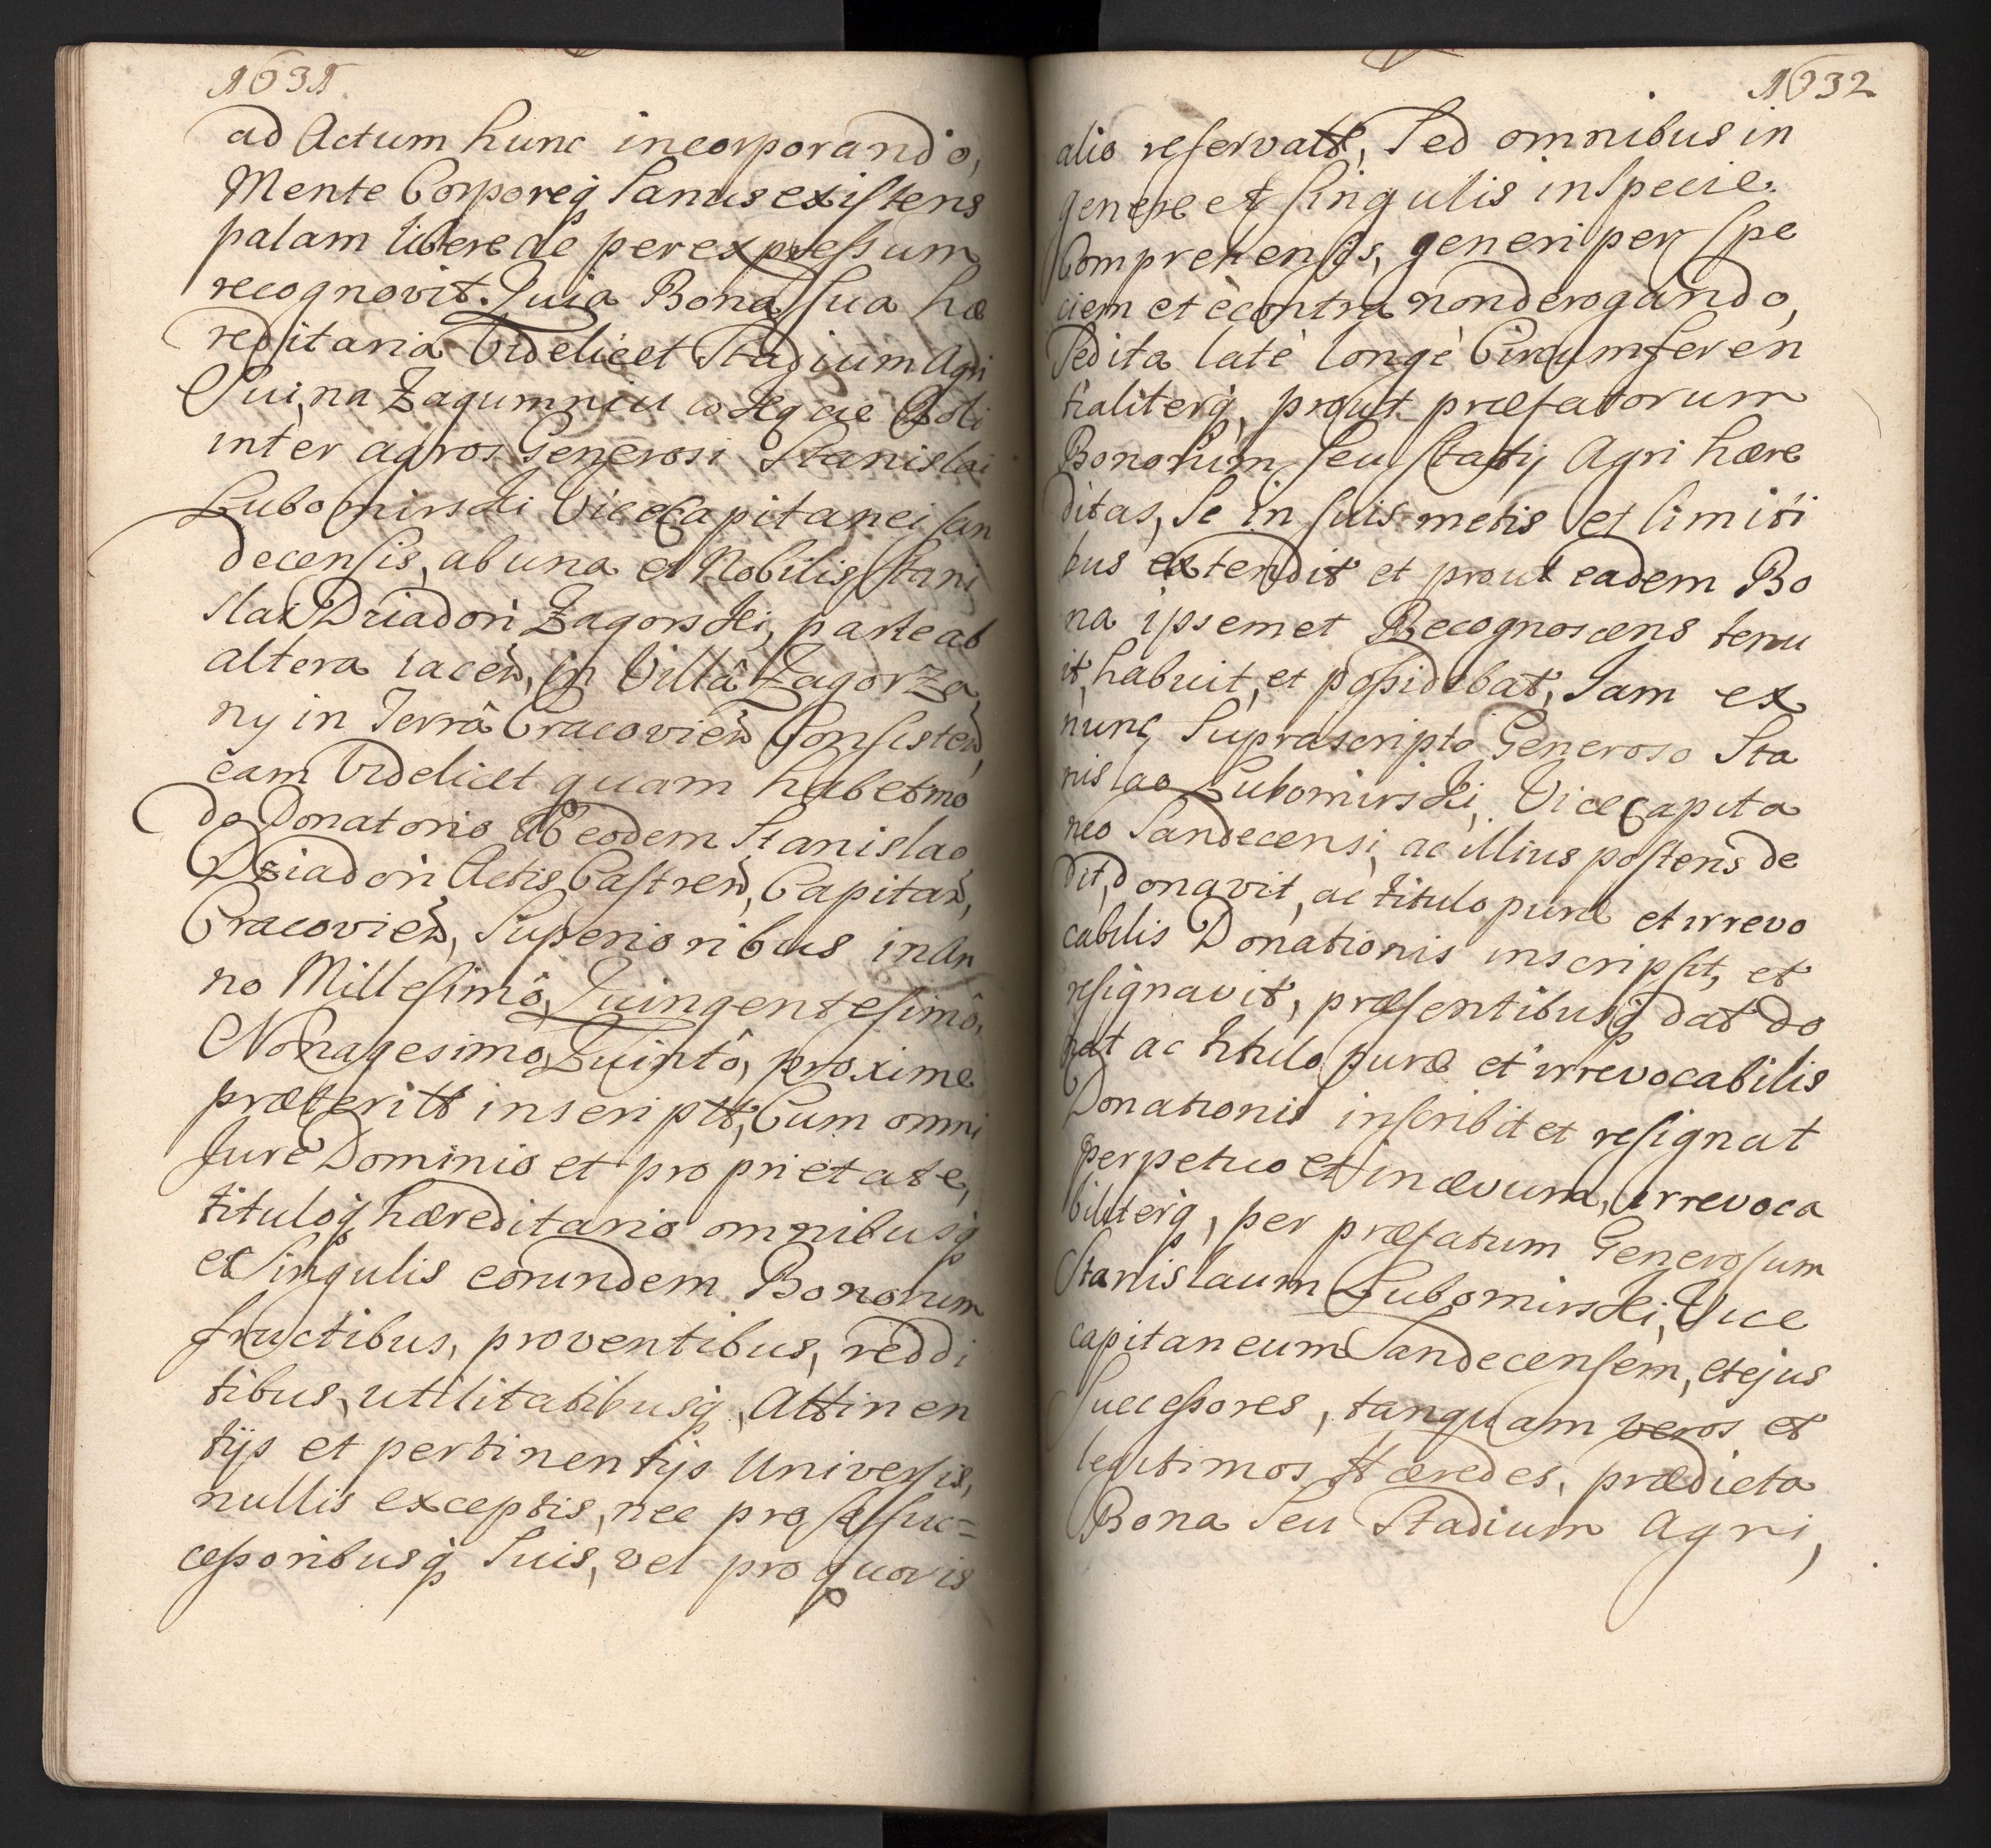 1631
ad Actum hunc incorporando,
Mente Corporeq́ Sanus existens
palam libere ac per expressum
recognovit. Quia Bona Sua hæ
reditaria Videlicet Stadium Agri
Sui, na Zagumniu w Kącie Roli
inter agros Generosi Stanislai
Lubomirski ViceCapitanei San
decensis, ab una et Nobilis Stani
slai Dziadoń Zagorski, parte ab
altera iaceń, in Villâ Zagorza
ny in Terrâ Cracovień Consisteń,
eam Videlicet quam habet mo
do Donatorio ab eodem Stanislao
Dziadoń Actis Castreń, Capitań,
Cracovień, Superioribus in An
no Millesimô, Quingentesimô,
Nonagesimo Quintô, proxime
præteritt inscriptt, Cum omni
Jure Dominio et proprietate,
tituloq́ hæreditario omnibusq́
et Singulis eorundem Bonorum
fructibus, proventibus, reddi
tibus, utilitatibusq́, Attinen
tijs et pertinentijs Universis,
nullis exceptis, nec pro se suc=
cessoribusq́ Suis, vel pro quovis
1632
alio reservatt, Sed omnibus in
genere et singulis in Specie
Comprehensis, generi per spe
ciem et è contra non derogando,
Sed ita latè longè Circumferen
tialiterq́, prout præfatorum
Bonorum, seu Stadij Agri hære
ditas, Se in suis metis et limiti
bus extendit et prout eadem Bo
na ipsemet Recognoscens tenu
it, habuit, et possidebat, Iam ex
nunc Supráscripto Generoso Sta
nislao Lubomirski, ViceCapita
neo Sandecensi, ac illius posteris de
dit, donavit, ac titulo puræ et irrevo
cabilis Donationis inscripsit, et
resignavit, præsentibusq́ dat do
nat ac titulo puræ et irrevocabilis
Donationis inscribit et resignat
perpetuo et in ævum, irrevoca
biliterq́, per præfatum Generosum
Stanislaum Lubomirski, Vice
capitaneum Sandecensem, et ejus
Successores, tanquam veros et
legitimos Hæredes, prædicta
Bona Seu Stadium Agri,